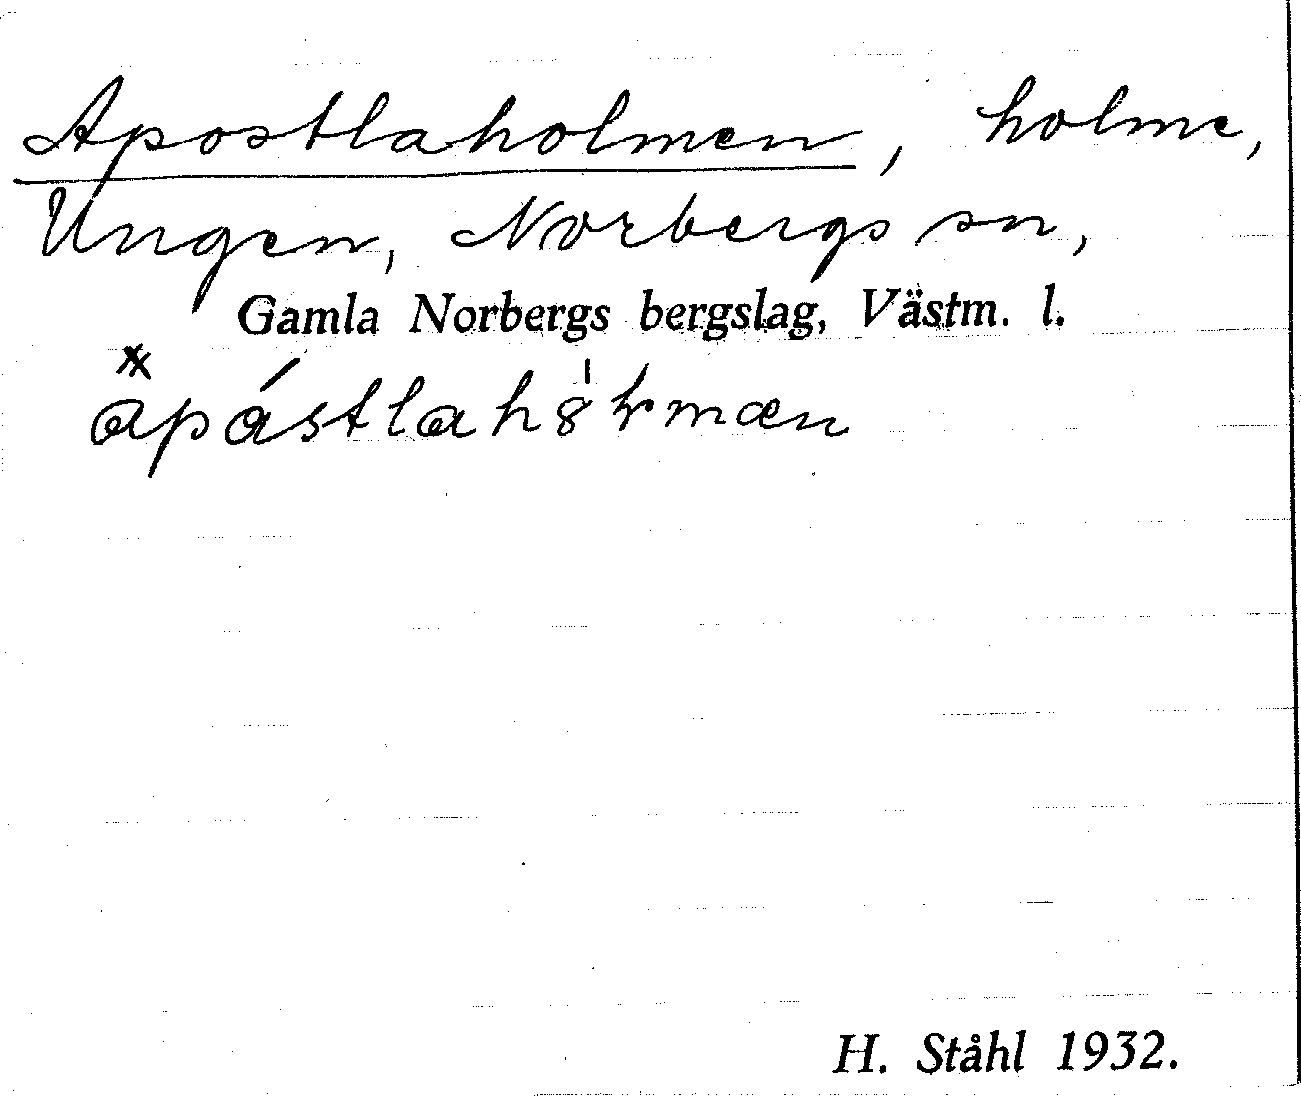 Apostlaholmen, holme,
Ungen, Norbergs sn,
Gamla Norbergs bergslag, Västm. l.
H. Ståhl 1932.